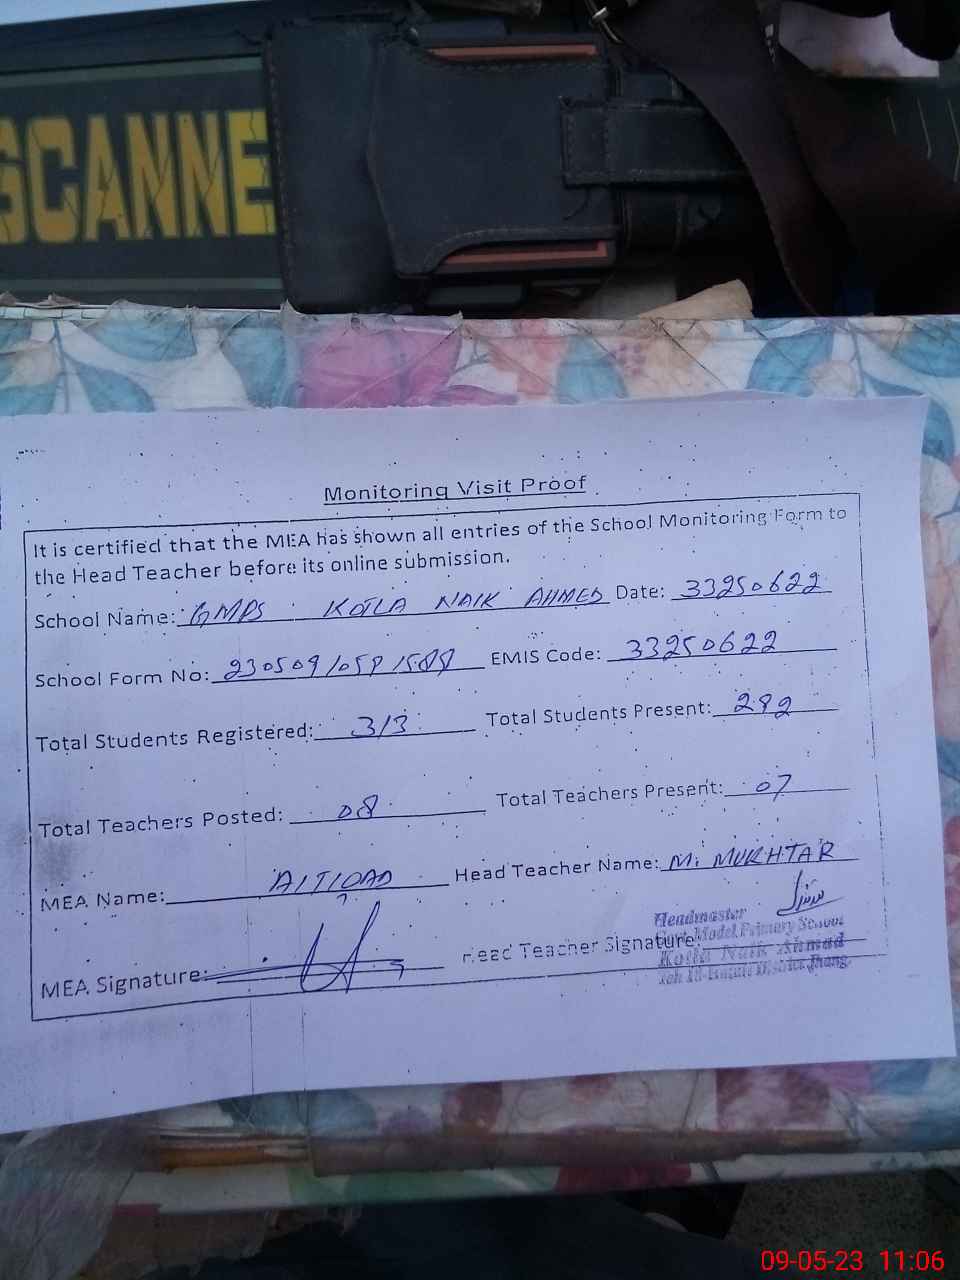 SCANNE
Monitoring Visit Proof
It is certified that the MEA has shown all entries of the School Monitoring Form to
the Head Teacher before its online submission.
School Name: GMPS KOTLA NAIK AHMED Date: 33250622
School Form No: EMIS Code: 33250622
Total Students Registered: 313 Total Students Present: 282
Total Teachers Posted: 08 Total Teachers Present: 07
MEA Name: Head Teacher Name: M. MUKHTAR
Headmaster
Govt. Model Primary School
MEA Signature: Head Teacher Signature:
Kotla Naik Ahmad
District Jhang
09-05-23 11:06